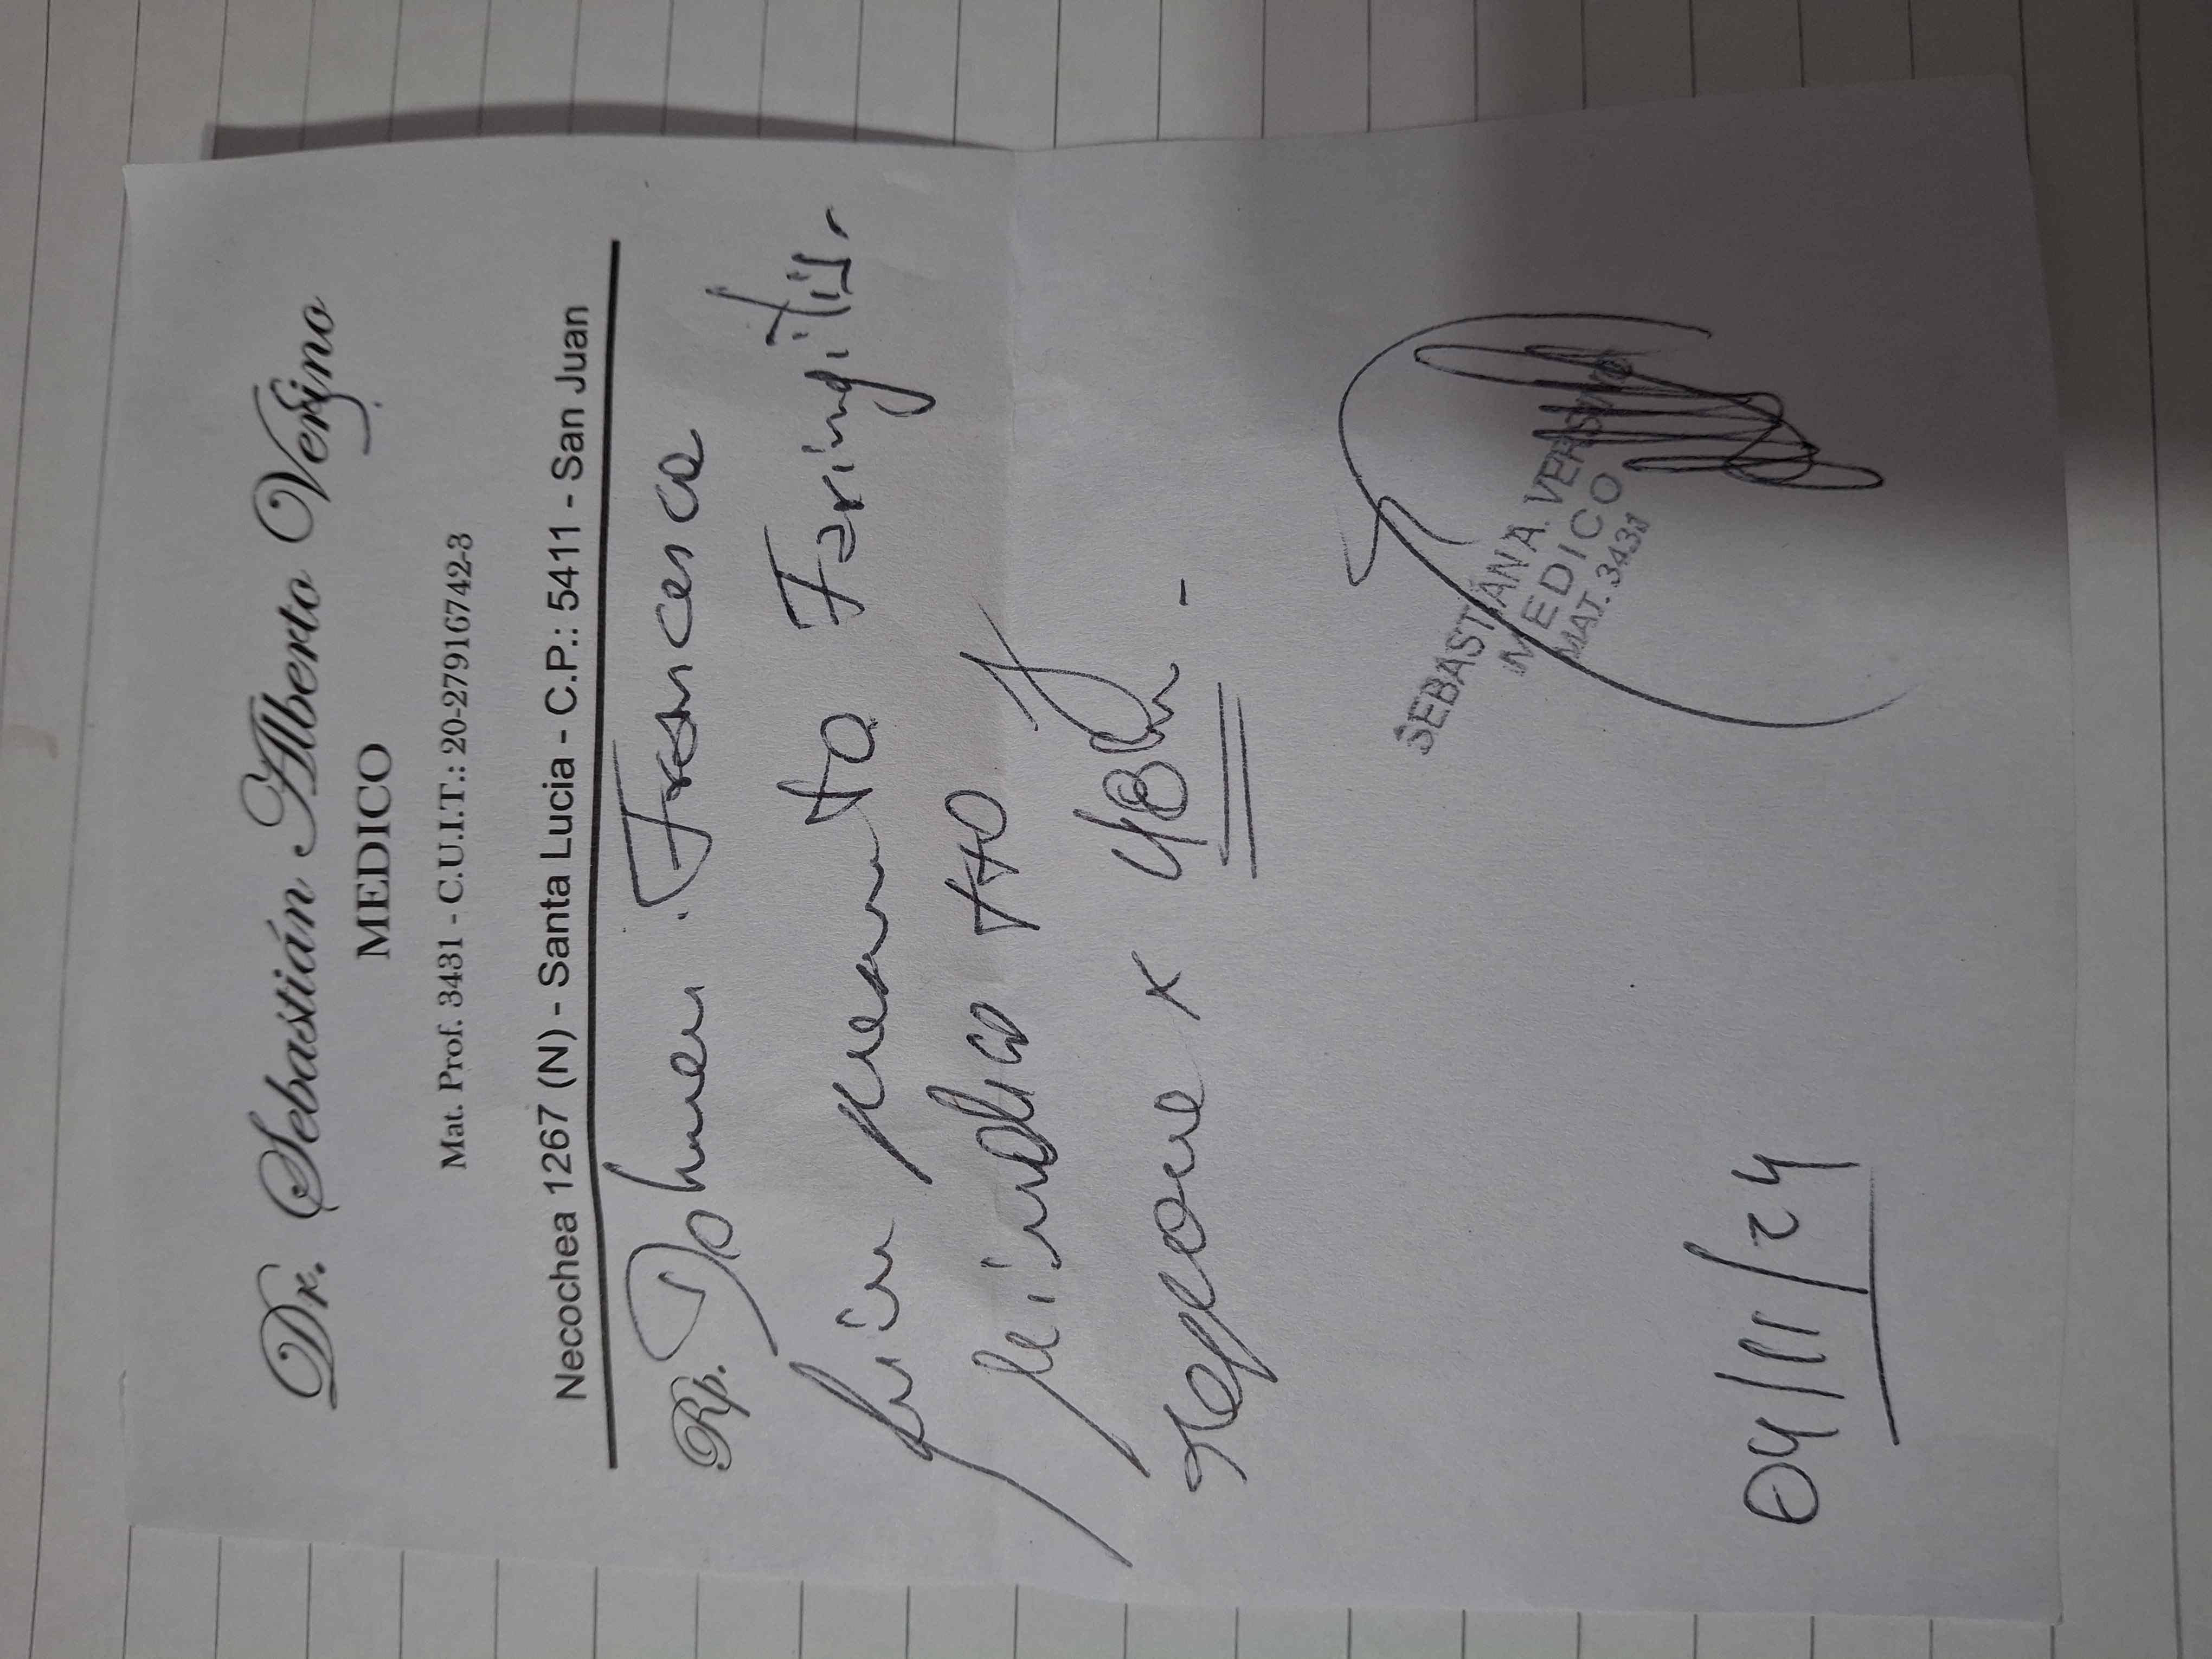 Dr. Sebastián Alberto Versino
MEDICO
Mat. Prof. 3431 - C.U.I.T.: 20-27916742-3
Necochea 1267 (N) - Santa Lucia - C.P.: 5411 - San Juan
Rp. Francesca
presenta Faringitis.
se indica tto y
reposo x 48hs -
SEBASTIÁN A. VERSINO
MEDICO
MAT. 3431
04/11/24